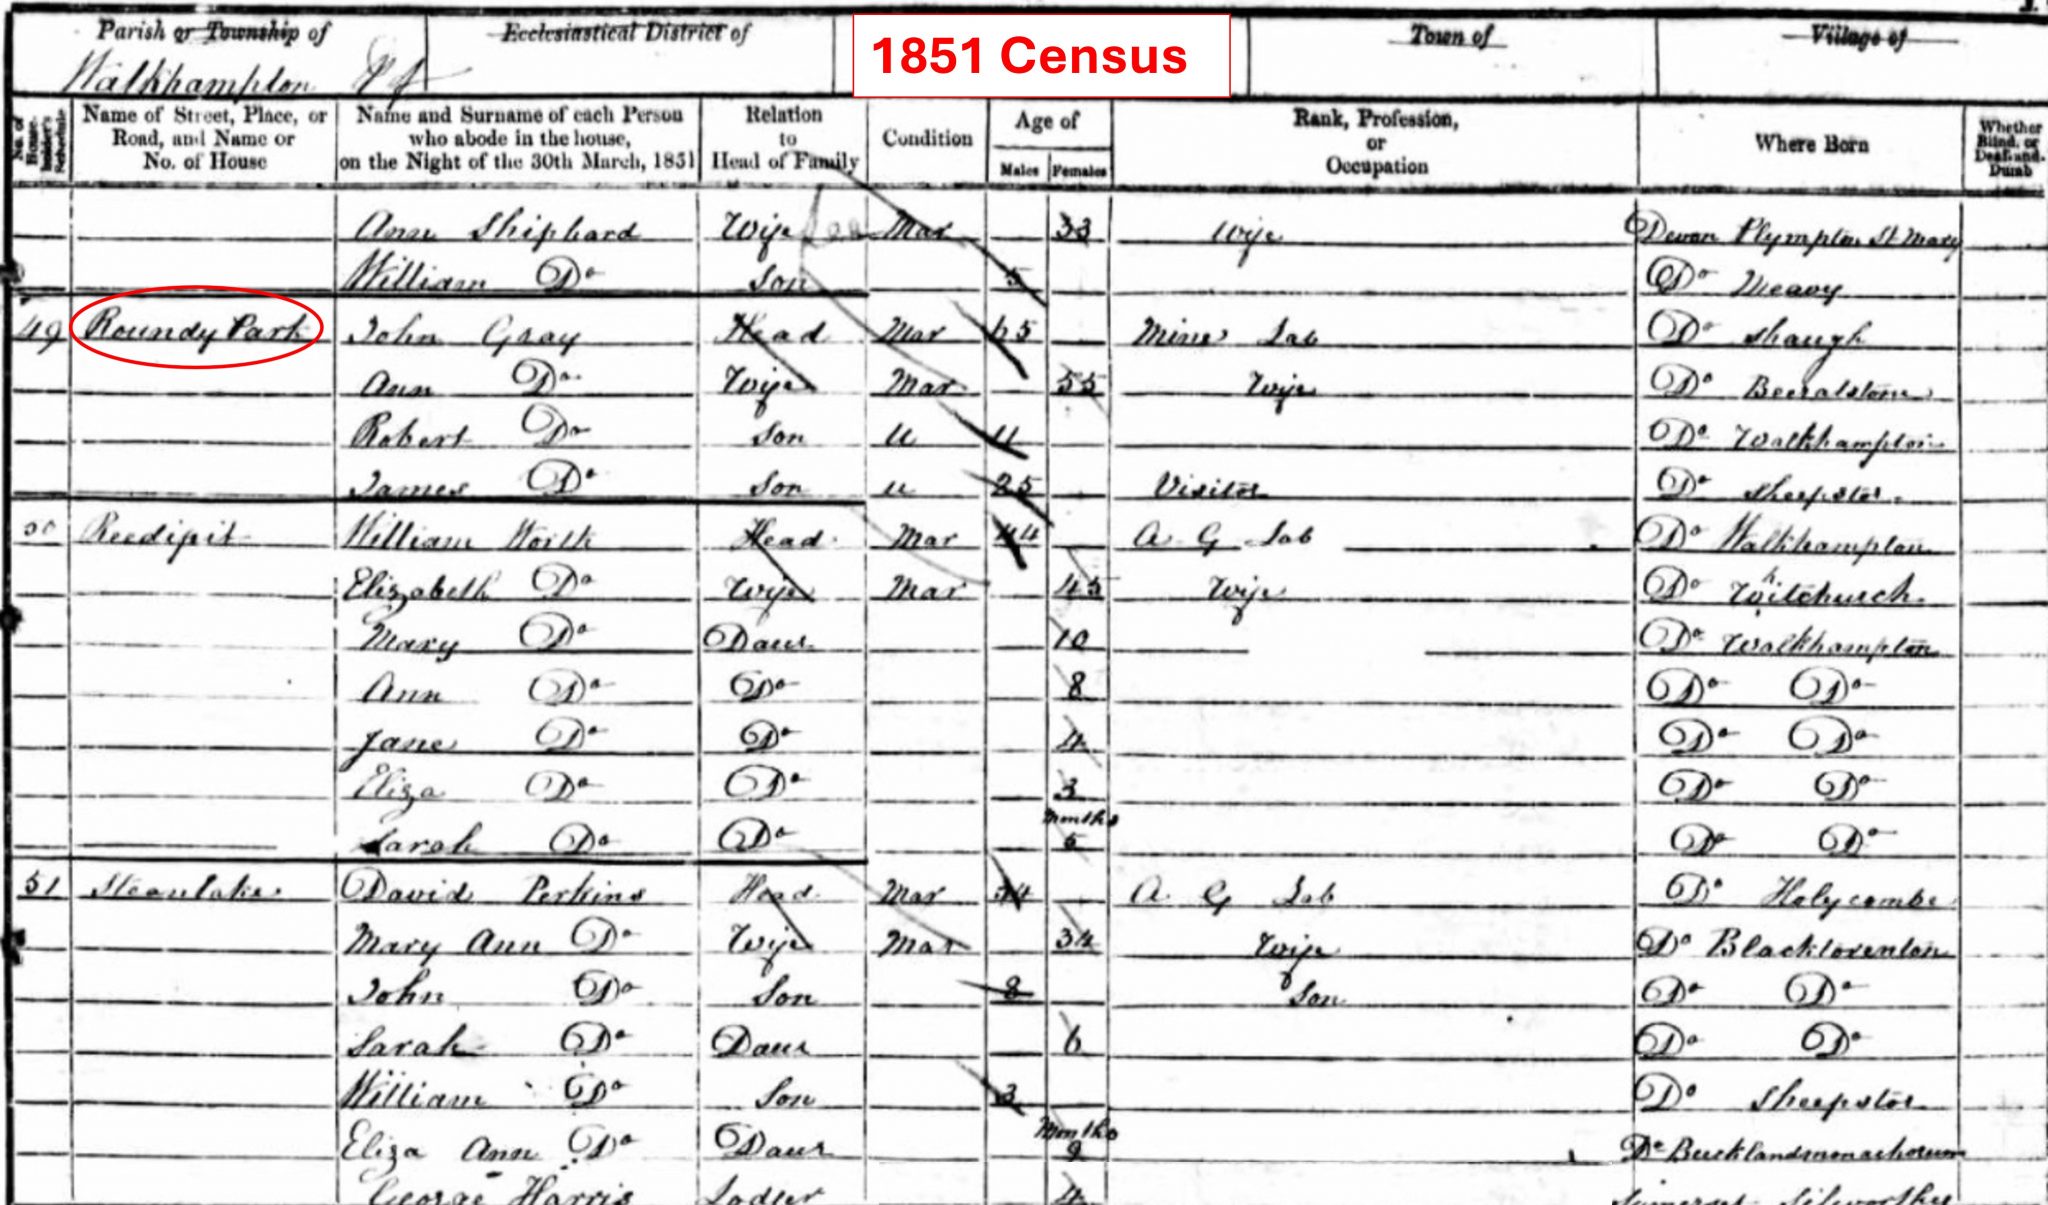 Parish or Township of Ecclesiastical District of 1851 Census Town of Village of
Walkhampton
No. of House-holder's Schedule Name of Street, Place, or Road, and Name or No. of House Name and Surname of each Person who abode in the house, on the Night of the 30th March, 1851 Relation to Head of Family Condition Age of Males Females Rank, Profession, or Occupation Where Born Whether Blind, or Deaf-and-Dumb
Ann Shiphard Wife Mar 33 Wife Devon Plympton St Mary
William Do Son 5 Do Meavy
49 Roundy Park John Gray Head Mar 65 Mine Lab Do Shaugh
Ann Do Wife Mar 55 Wife Do Beeralstone
Robert Do Son U 11 Do Walkhampton
James Do Son U 25 Visitor Do Sheepstor
50 Reedipit William Worth Head Mar 44 A G Lab Do Walkhampton
Elizabeth Do Wife Mar 45 Wife Do Whitchurch
Mary Do Daur 10 Do Walkhampton
Ann Do Do 8 Do Do
Jane Do Do 4 Do Do
Eliza Do Do 3 Do Do
Sarah Do Do Months 5 Do Do
51 Steanlake David Perkins Head Mar 34 A G Lab Do Holycombe
Mary Ann Do Wife Mar 34 Wife Do Blacktorenton
John Do Son 8 Son Do Do
Sarah Do Daur 6 Do Do
William Do Son 3 Do Sheepstor
Eliza Ann Do Daur Months 9 Do Bucklandmonachorum
George Harris Lodger Somerset